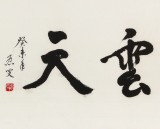 雲天
癸未年